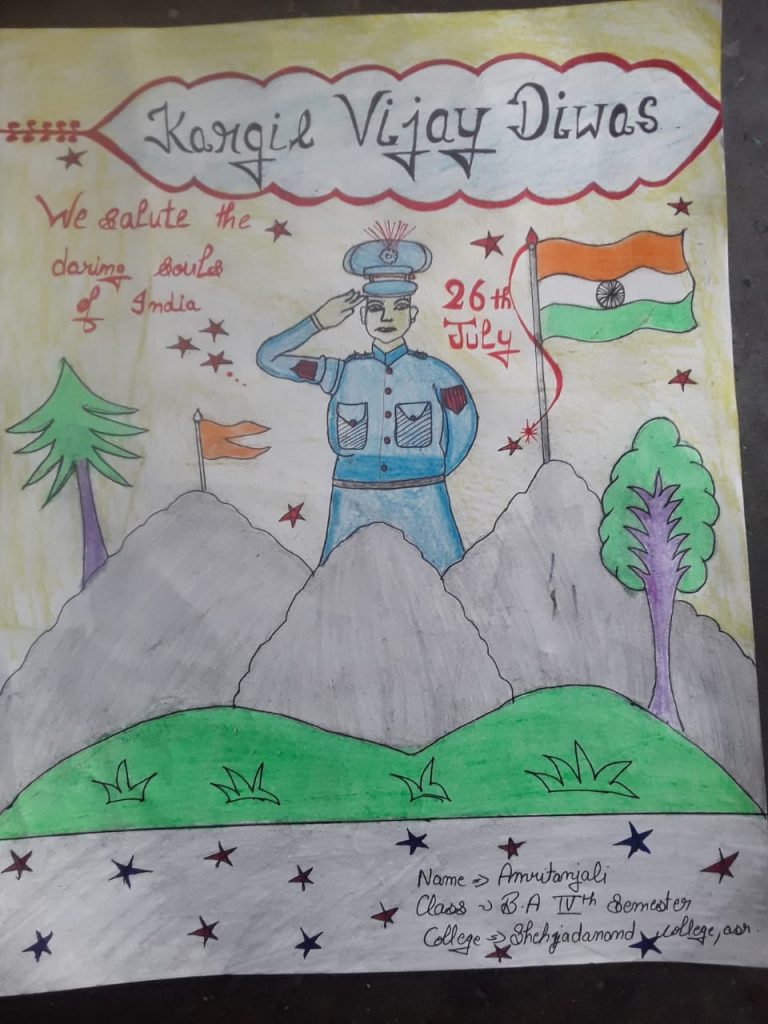 Kargil Vijay Diwas
We salute the
daring souls
of India
26th
July
Name => Amrutanjali
Class -> B.A IVth Semester
College => Shehjadanand college, asr.